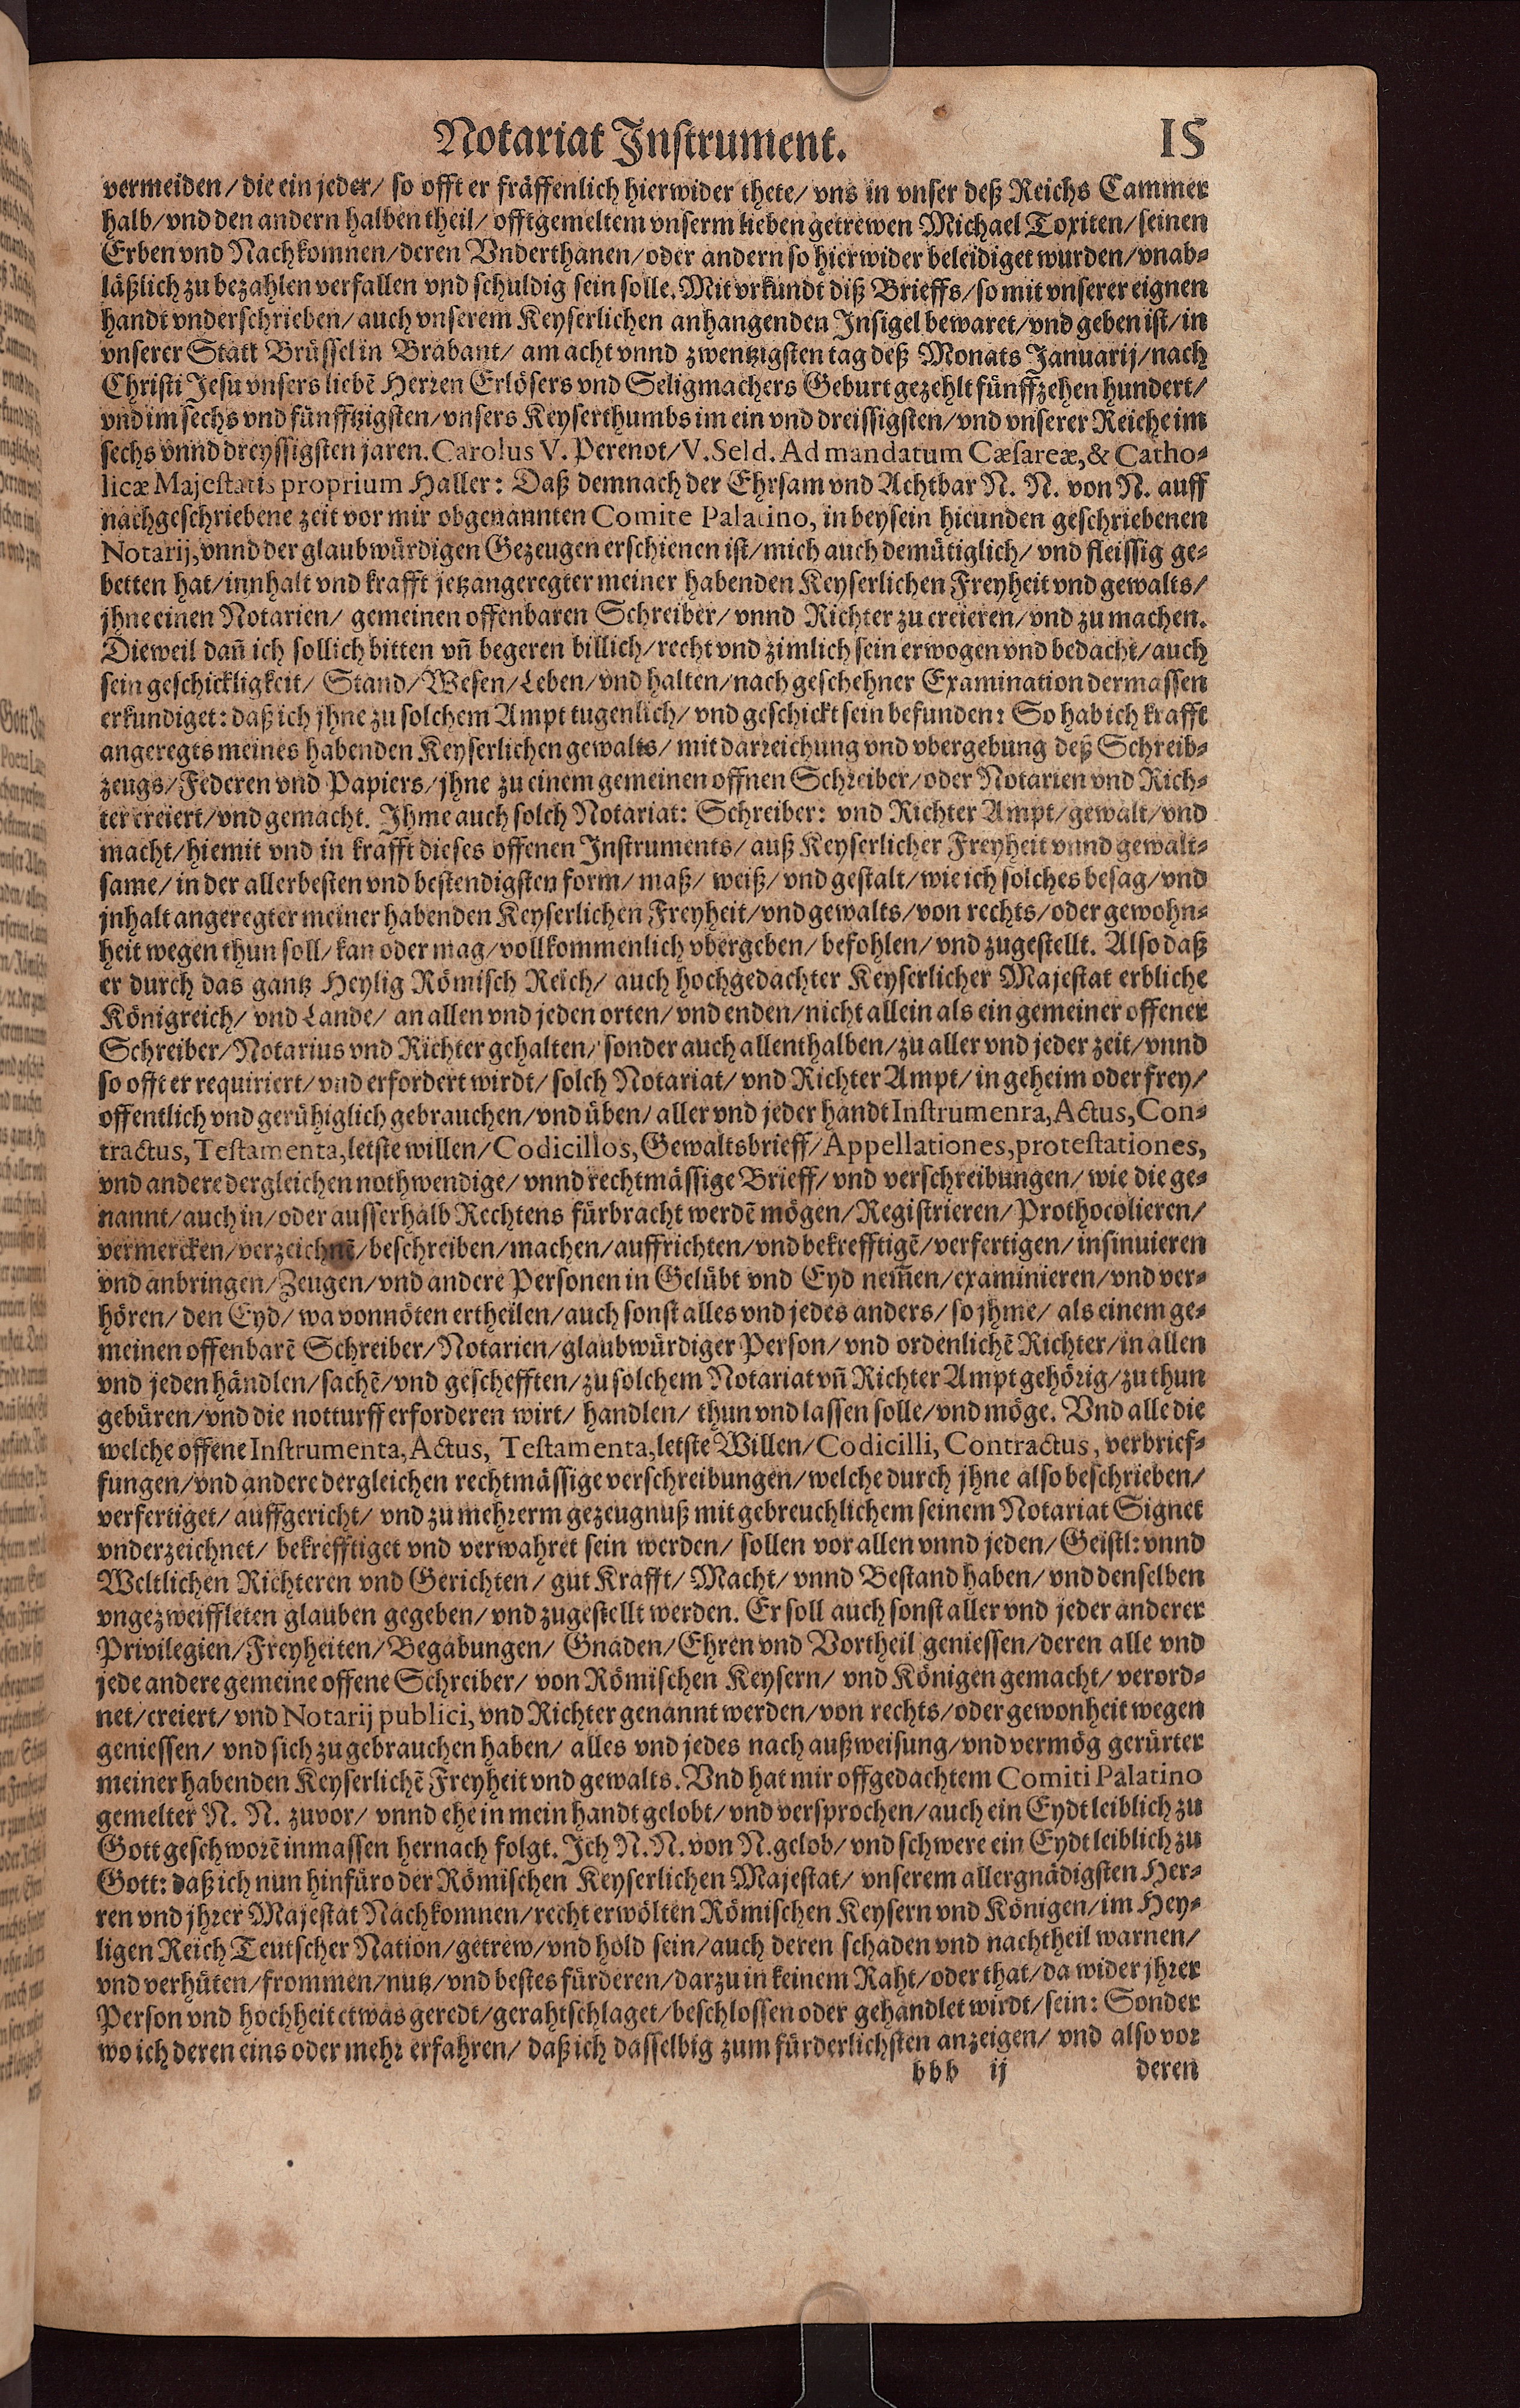 Notariat Instrument. 15
vermeiden/ die ein jeder/ so offt er fräffenlich hierwider thete/ vns in vnser deß Reichs Cammer
halb/ vnd den andern halben theil/ offtgemeltem vnserm lieben getrewen Michael Toxiten/ seinen
Erben vnd Nachkomnen/ deren Vnderthanen/ oder andern so hierwider beleidiget wurden/ vnab-
läßlich zu bezahlen verfallen vnd schuldig sein solle. Mit vrkundt diß Brieffs/ so mit vnserer eignen
handt vnderschrieben/ auch vnserem Keyserlichen anhangenden Insigel bewaret/ vnd geben ist/ in
vnserer Statt Brüssel in Brabant/ am acht vnnd zwentzigsten tag deß Monats Januarij/ nach
Christi Jesu vnsers liebē Herren Erlösers vnd Seligmachers Geburt gezehlt fünffzehen hundert/
vnd im sechs vnd fünfftzigsten/ vnsers Keyserthumbs im ein vnd dreissigsten/ vnd vnserer Reiche im
sechs vnnd dreyssigsten jaren. Carolus V. Perenot/ V. Seld. Ad mandatum Cæsareæ, & Catho-
licæ Majestatis proprium Haller: Daß demnach der Ehrsam vnd Achtbar N. N. von N. auff
nachgeschriebene zeit vor mir obgenannten Comite Palatino, in beysein hieunden geschriebenen
Notarij, vnnd der glaubwürdigen Gezeugen erschienen ist/ mich auch demütiglich/ vnd fleissig ge-
betten hat/ innhalt vnd krafft jetzangeregter meiner habenden Keyserlichen Freyheit vnd gewalts/
jhne einen Notarien/ gemeinen offenbaren Schreiber/ vnnd Richter zu creieren/ vnd zu machen.
Dieweil dañ ich sollich bitten vñ begeren billich/ recht vnd zimlich sein erwogen vnd bedacht/ auch
sein geschickligkeit/ Stand/ Wesen/ Leben/ vnd halten/ nach geschehner Examination dermassen
erkundiget: daß ich jhne zu solchem Ampt tugenlich/ vnd geschickt sein befunden: So hab ich krafft
angeregts meines habenden Keyserlichen gewalts/ mit darreichung vnd vbergebung deß Schreib-
zeugs/ Federen vnd Papiers/ jhne zu einem gemeinen offnen Schreiber/ oder Notarien vnd Rich-
ter creiert/ vnd gemacht. Ihme auch solch Notariat: Schreiber: vnd Richter Ampt/ gewalt/ vnd
macht/ hiemit vnd in krafft dieses offenen Instruments/ auß Keyserlicher Freyheit vnnd gewalt-
same/ in der allerbesten vnd bestendigsten form/ maß/ weiß/ vnd gestalt/ wie ich solches besag/ vnd
jnhalt angeregter meiner habenden Keyserlichen Freyheit/ vnd gewalts/ von rechts/ oder gewohn-
heit wegen thun soll/ kan oder mag/ vollkommenlich vbergeben/ befohlen/ vnd zugestellt. Also daß
er durch das gantz Heylig Römisch Reich/ auch hochgedachter Keyserlicher Majestat erbliche
Königreich/ vnd Lande/ an allen vnd jeden orten/ vnd enden/ nicht allein als ein gemeiner offener
Schreiber/ Notarius vnd Richter gehalten/ sonder auch allenthalben/ zu aller vnd jeder zeit/ vnnd
so offt er requiriert/ vnd erfordert wirdt/ solch Notariat/ vnd Richter Ampt/ in geheim oder frey/
offentlich vnd gerühiglich gebrauchen/ vnd üben/ aller vnd jeder handt Instrumenra, Actus, Con-
tractus, Testamenta, letste willen/ Codicillos, Gewaltsbrieff/ Appellationes, protestationes,
vnd andere dergleichen nothwendige/ vnnd rechtmässige Brieff/ vnd verschreibungen/ wie die ge-
nannt/ auch in/ oder ausserhalb Rechtens fürbracht werdē mögen/ Registrieren/ Prothocolieren/
vermercken/ verzeichnē/ beschreiben/ machen/ auffrichten/ vnd bekrefftigē/ verfertigen/ insinuieren
vnd anbringen/ Zeugen/ vnd andere Personen in Gelübt vnd Eyd nem̃en/ examinieren/ vnd ver-
hören/ den Eyd/ wa vonnöten ertheilen/ auch sonst alles vnd jedes anders/ so jhme/ als einem ge-
meinen offenbarē Schreiber/ Notarien/ glaubwürdiger Person/ vnd ordenlichē Richter/ in allen
vnd jeden händlen/ sachē/ vnd geschefften/ zu solchem Notariat vñ Richter Ampt gehörig/ zu thun
gebüren/ vnd die notturfft erforderen wirt/ handlen/ thun vnd lassen solle/ vnd möge. Vnd alle die
welche offene Instrumenta, Actus, Testamenta, letste Willen/ Codicilli, Contractus, verbrief-
fungen/ vnd andere dergleichen rechtmässige verschreibungen/ welche durch jhne also beschrieben/
verfertiget/ auffgericht/ vnd zu mehrerm gezeugnuß mit gebreuchlichem seinem Notariat Signet
vnderzeichnet/ bekrefftiget vnd verwahret sein werden/ sollen vor allen vnnd jeden/ Geistl: vnnd
Weltlichen Richteren vnd Gerichten/ gut Krafft/ Macht/ vnnd Bestand haben/ vnd denselben
vngezweiffleten glauben gegeben/ vnd zugestellt werden. Er soll auch sonst aller vnd jeder anderer
Privilegien/ Freyheiten/ Begabungen/ Gnaden/ Ehren vnd Vortheil geniessen/ deren alle vnd
jede andere gemeine offene Schreiber/ von Römischen Keysern/ vnd Königen gemacht/ verord-
net/ creiert/ vnd Notarij publici, vnd Richter genannt werden/ von rechts/ oder gewonheit wegen
geniessen/ vnd sich zu gebrauchen haben/ alles vnd jedes nach außweisung/ vnd vermög gerürter
meiner habenden Keyserlichē Freyheit vnd gewalts. Vnd hat mir offgedachtem Comiti Palatino
gemelter N. N. zuvor/ vnnd ehe in mein handt gelobt/ vnd versprochen/ auch ein Eydt leiblich zu
Gott geschworē inmassen hernach folgt. Ich N. N. von N. gelob/ vnd schwere ein Eydt leiblich zu
Gott: daß ich nun hinfüro der Römischen Keyserlichen Majestat/ vnserem allergnädigsten Her-
ren vnd jhrer Majestat Nachkomnen/ recht erwölten Römischen Keysern vnd Königen/ im Hey-
ligen Reich Teutscher Nation/ getrew/ vnd hold sein/ auch deren schaden vnd nachtheil warnen/
vnd verhüten/ frommen/ nutz/ vnd bestes fürderen/ darzu in keinem Raht/ oder that/ da wider jhrer
Person vnd hochheit etwas geredt/ gerahtschlaget/ beschlossen oder gehandlet wirdt/ sein: Sonder
wo ich deren eins oder mehr erfahren/ daß ich dasselbig zum fürderlichsten anzeigen/ vnd also vor
bbb ij deren